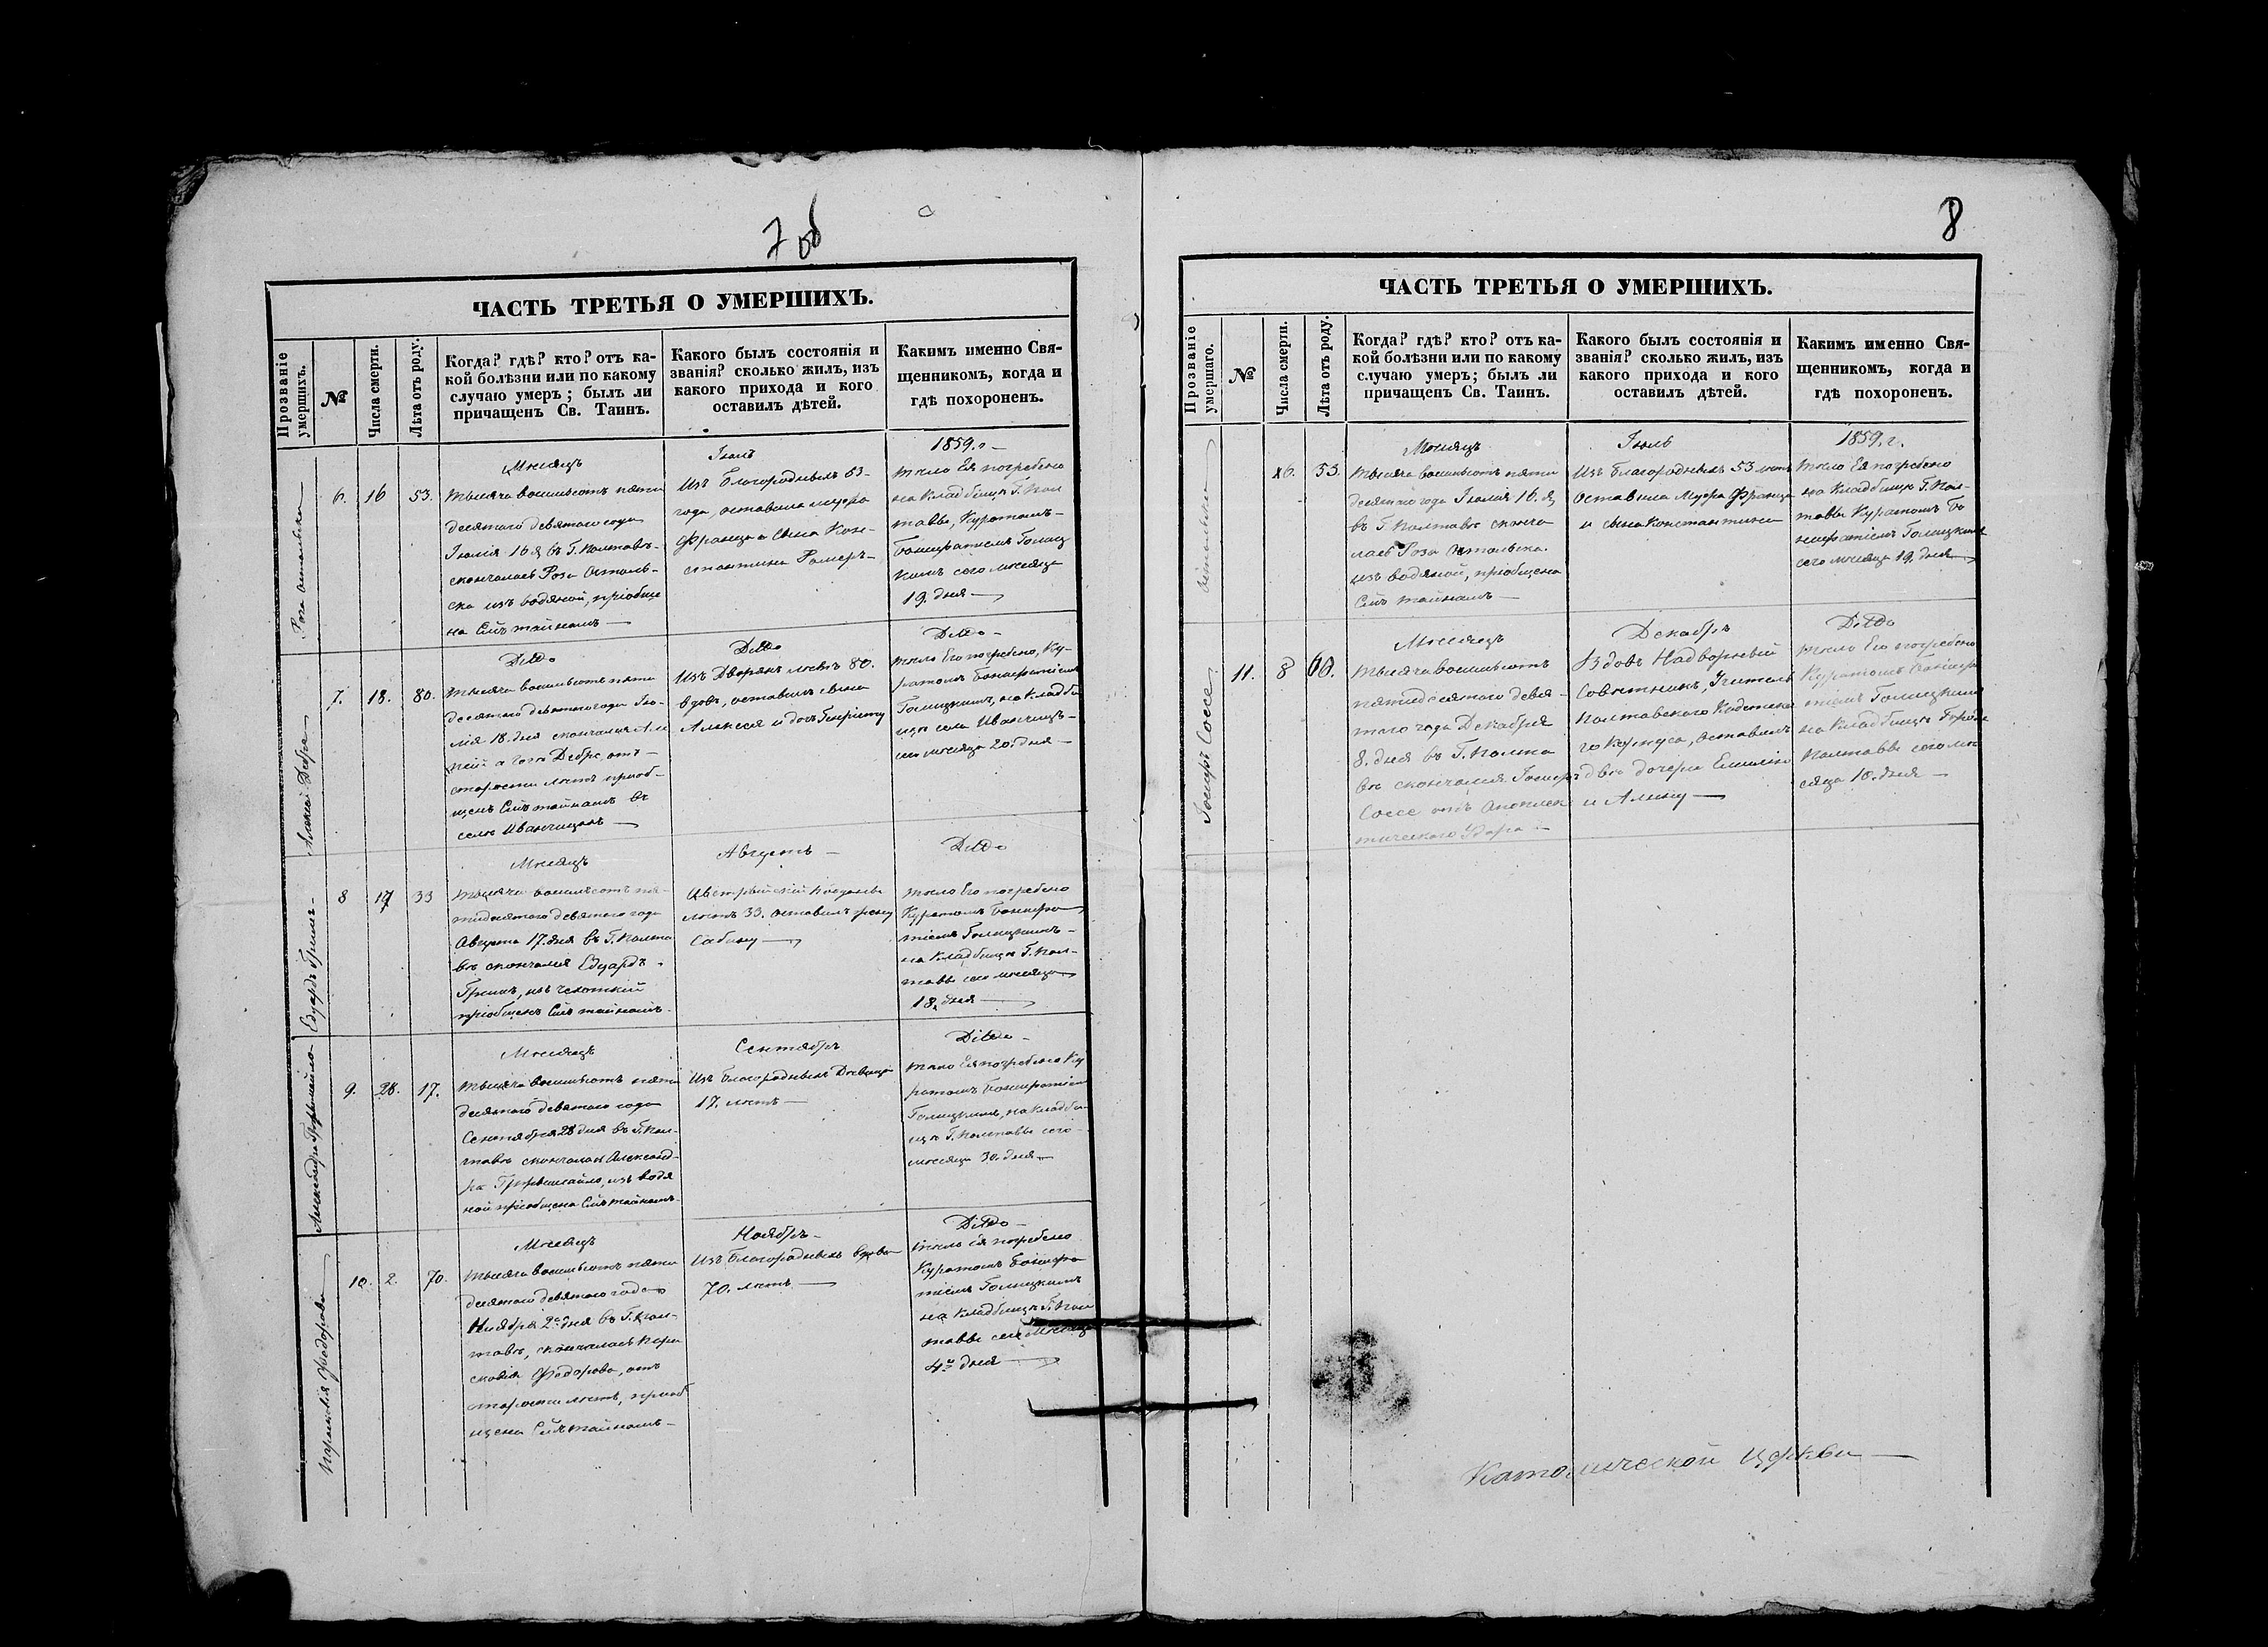 7 об
ЧАСТЬ ТРЕТЬЯ О УМЕРШИХЪ.
Прозваніе умершихъ.
№
Числа смерти.
Лѣта отъ роду.
Когда? гдѣ? кто? отъ ка-
кой болѣзни или по какому
случаю умеръ; былъ ли
причащенъ Св. Таинъ.
Какого былъ состоянія и
званія? сколько жилъ, изъ
какого прихода и кого
оставилъ дѣтей.
Какимъ именно Свя-
щенникомъ, когда и
гдѣ похороненъ.
Роза
6.
16
53.
Мѣсяцъ
тысяча восемьсотъ пяти
десятого девятого года
Іюлія 16 д въ Г. Полтавѣ
скончалась Роза
изъ водяной, пріобще
на Св. тайнамъ
Іюль
Изъ Благородныхъ 53
года, оставила мужа
Франца и Сына Кон-
стантина
1859. г
тѣло Ея погребено
на Кладбищѣ Г. Пол
тавы, Куратомъ
Бонифатіемъ Голиц
кимъ сего мѣсяца
19. дня
Алексѣй
7.
18.
80.
Ditto
тысяча восемьсотъ пяти
десятого девятого года Ію-
лія 18. дня скончался Але
отъ
старости лѣтъ приоб-
щенъ Св. тайнамъ въ
селѣ Иванчицахъ
Ditto
Изъ Дворянъ лѣтъ 80.
вдовъ, оставилъ сына
Алексея и дочь Генріету
Ditto
тѣло Его погребено, Ку-
ратомъ Бонифатіемъ
Голицкимъ, на Кладби
щѣ села Иванчицъ
сего мѣсяца 20. дня
Едуардъ
8
17
33
Мѣсяцъ
тысяча восемьсотъ пя-
тидесятого девятого года
Августа 17. дня въ Г. Полта
вѣ скончался Едуардъ
изъ чахотки
пріобщенъ Св. тайнамъ
Августъ
Австрійскій Подданый
лѣтъ 33. оставилъ жену
Сабину
Ditto
тѣло Его погребено
Куратомъ Бонифа
тіемъ Голицкимъ
на Кладбищѣ Г. Пол-
тавы сего мѣсяца
18. дня
Александра
9.
28.
17.
Мѣсяцъ
тысяча восемьсотъ пяти
десятого девятого года
Сентября 28 дня въ Г. Пол-
тавѣ скончалась Александ-
ра изъ водя
ной пріобщена Св. тайнамъ
Сентябрь
Изъ Благородныхъ Дѣвица
17. лѣтъ
Ditto
тѣло Ея погребено Ку
ратомъ Бонифатіемъ
Голицкимъ, на Кладби
щѣ Г. Полтавы сего
мѣсяца 30. дня
Параскевія Федорова
10.
2.
70.
Мѣсяцъ
тысяча восемьсотъ пяти
десятого девятого года
Ноября 2 дня въ Г. Пол-
тавѣ, скончалась Пара
скевія Федорова, отъ
старости лѣтъ, приоб
щена Св. тайнамъ
Ноябрь
Изъ Благородныхъ вдова
70. лѣтъ
Ditto
тѣло Ея погребено
Куратомъ Бонифа
тіемъ Голицкимъ
на Кладбищѣ Г. Пол
тавы сего мѣсяца
4 дня
8
ЧАСТЬ ТРЕТЬЯ О УМЕРШИХЪ.
Прозваніе умершаго.
№
Числа смерти.
Лѣта отъ роду.
Когда? гдѣ? кто? отъ ка-
кой болѣзни или по какому
случаю умеръ; былъ ли
причащенъ Св. Таинъ.
Какого былъ состоянія и
званія? сколько жилъ, изъ
какого прихода и кого
оставилъ дѣтей.
Какимъ именно Свя-
щенникомъ, когда и
гдѣ похороненъ.
16.
53.
Мѣсяцъ
тысяча восемьсотъ пяти
десятого года Іюлія 16. д
въ Г. Полтавѣ сконча
лась Роза
изъ водяной, пріобщена
Св. тайнамъ
Іюль
Изъ Благородныхъ 53 лѣтъ
оставила Мужа Франца
и сына Константина
1859. г.
тѣло Ея погребено
на Кладбищѣ Г. Пол-
тавы Куратомъ Бо
нифатіемъ Голицкимъ
сего мѣсяца 19. дня
Іосифъ Соссе
11.
8
60.
Мѣсяцъ
тысяча восемьсотъ
пятидесятого девя-
того года Декабря
8. дня въ Г. Полта
вѣ скончался Іосифъ
Соссе отъ апоплек
тического удара
Декабрь
Вдовъ Надворный
Совѣтникъ, Учитель
Полтавского Кадетска
го Корпуса, оставилъ
двѣ дочери Емилію
и Алину
Ditto
тѣло Его погребено
Куратомъ Бонифа
тіемъ Голицкимъ
на Кладбищѣ Города
Полтавы сего мѣ
сяца 10. дня
Католической Церкви